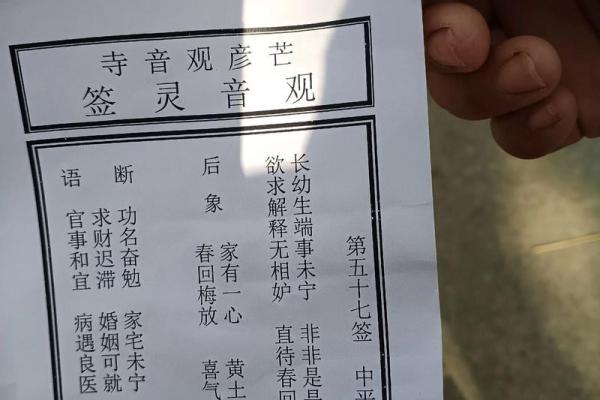 芒彦观音寺
观音灵签
第五十七签 中平
长幼生端事未宁 非非是是
欲求解释无相妒 直待春回
后象
家有一心 黄土
春回梅放 喜气
断语
功名奋勉 家宅未宁
求财迟滞 婚姻可就
官事和宜 病遇良医